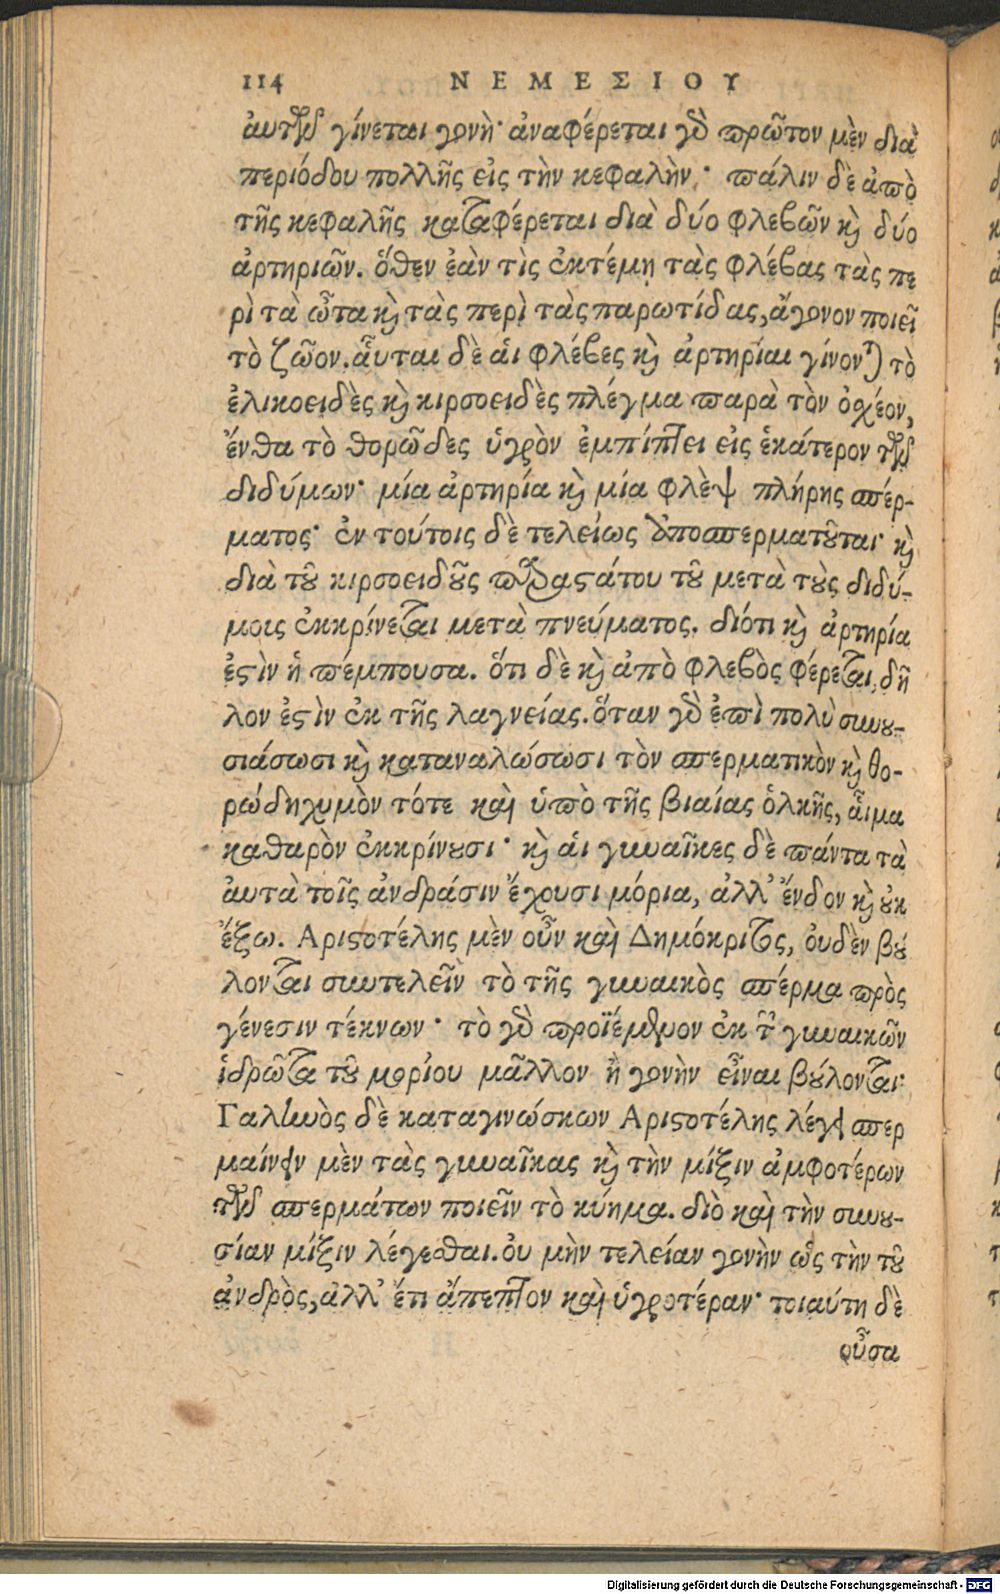 114 ΝΕΜΕΣΙΟΥ
ἀυτῶν γίνεται γονή· ἀναφέρεται γὸ πρῶτον μὲν διὰ
περιόδου πολλῆς εἰς τὴν κεφαλὴν· πάλιν δὲ ἀπὸ
τῆς κεφαλῆς καταφέρεται διὰ δύο φλεβῶν κỳ δύο
ἀρτηριῶν. ὅθεν ἐάν τὶς ἐκτέμῃ τὰς φλέβας τὰς πε
ρὶ τὰ ὦτα κỳ τὰς περὶ τὰς παρωτίδας, ἄγονον ποιεῖ
τὸ ζῶον. ἇυται δὲ ἁι φλέβες κỳ ἀρτηρίαι γίνονται τὸ
ἑλικοειδὲς κỳ κιρσοειδὲς πλέγμα παρὰ τὸν ὀχέον,
ἔνθα τὸ θορῶδες ὑγρὸν ἐμπίπτει εἰς ἑκάτερον τῶν
διδύμων· μία ἀρτηρία κỳ μία φλὲψ πλήρης σπέρ-
ματος· ἐν τούτοις δὲ τελείως ἀποσπερματοῦται· κỳ
διὰ τοῦ κιρσοειδοῦς παραστάτου τοῦ μετὰ τοὺς διδύ-
μοις ἐκκρίνεται μετὰ πνεύματος. διότι κỳ ἀρτηρία
ἐστὶν ἡ πέμπουσα. ὅτι δὲ κỳ ἀπὸ φλεβὸς φέρεται, δῆ
λον ἐστὶν ἐκ τῆς λαγνείας. ὅταν γὸ ἐπὶ πολὺ συνου-
σιάσωσι κỳ καταναλώσωσι τὸν σπερματικὸν κỳ θο-
ρώδη χυμὸν τότε καὶ ὑπὸ τῆς βιαίας ὁλκῆς, ἇιμα
καθαρὸν ἐκκρίνουσι· κỳ ἁι γυναῖκες δὲ πάντα τὰ
ἀυτὰ τοῖς ἀνδράσιν ἔχουσι μόρια, ἀλλ' ἔνδον κỳ οὐκ
ἔξω. Ἀριστοτέλης μὲν οὖν καὶ Δημόκριτος, ὀυδὲν βού
λονται συντελεῖν τὸ τῆς γυναικὸς σπέρμα πρὸς
γένεσιν τέκνων· τὸ γὸ προϊέμενον ἐκ τῶν γυναικῶν
ἱδρῶτα τοῦ μορίου μᾶλλον ἢ γονὴν εἶναι βούλονται·
Γαληνὸς δὲ καταγινώσκων Ἀριστοτέλης λέγει σπερ
μαίνειν μὲν τὰς γυναῖκας κỳ τὴν μίξιν ἀμφοτέρων
τῶν σπερμάτων ποιεῖν τὸ κύημα. διὸ καὶ τὴν συνου-
σίαν μίξιν λέγεσθαι. ὀυ μὴν τελείαν γονὴν ὡς τὴν τοῦ
ἀνδρὸς, ἀλλ' ἔτι ἄπεπτον καὶ ὑγροτέραν· τοιαύτη δὲ
οὖσα
Digitalisierung gefördert durch die Deutsche Forschungsgemeinschaft - DFG